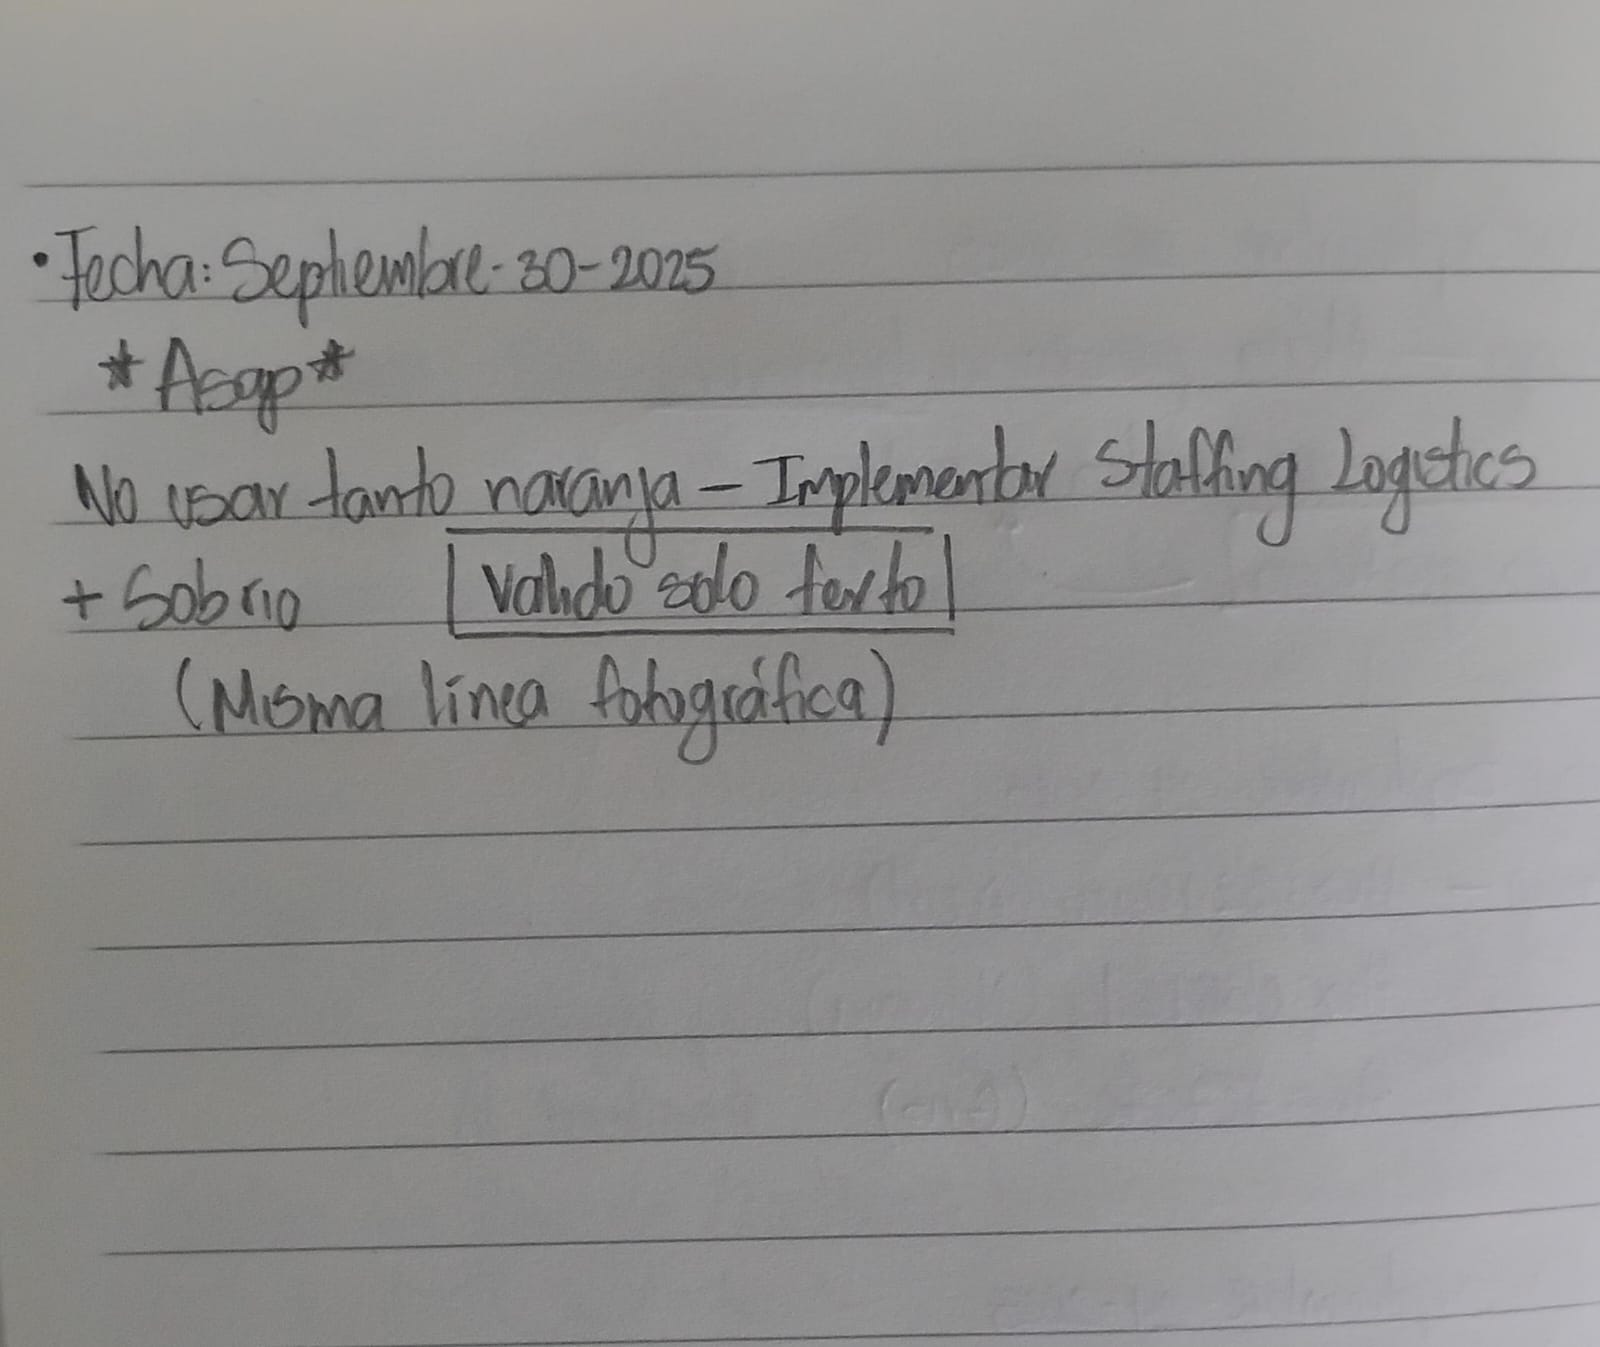 • Fecha: Septiembre-30-2025
*Asap*
No usar tanto naranja – Implementar Staffing Logistics
+ Sobrio valido solo texto
(Misma línea fotográfica)